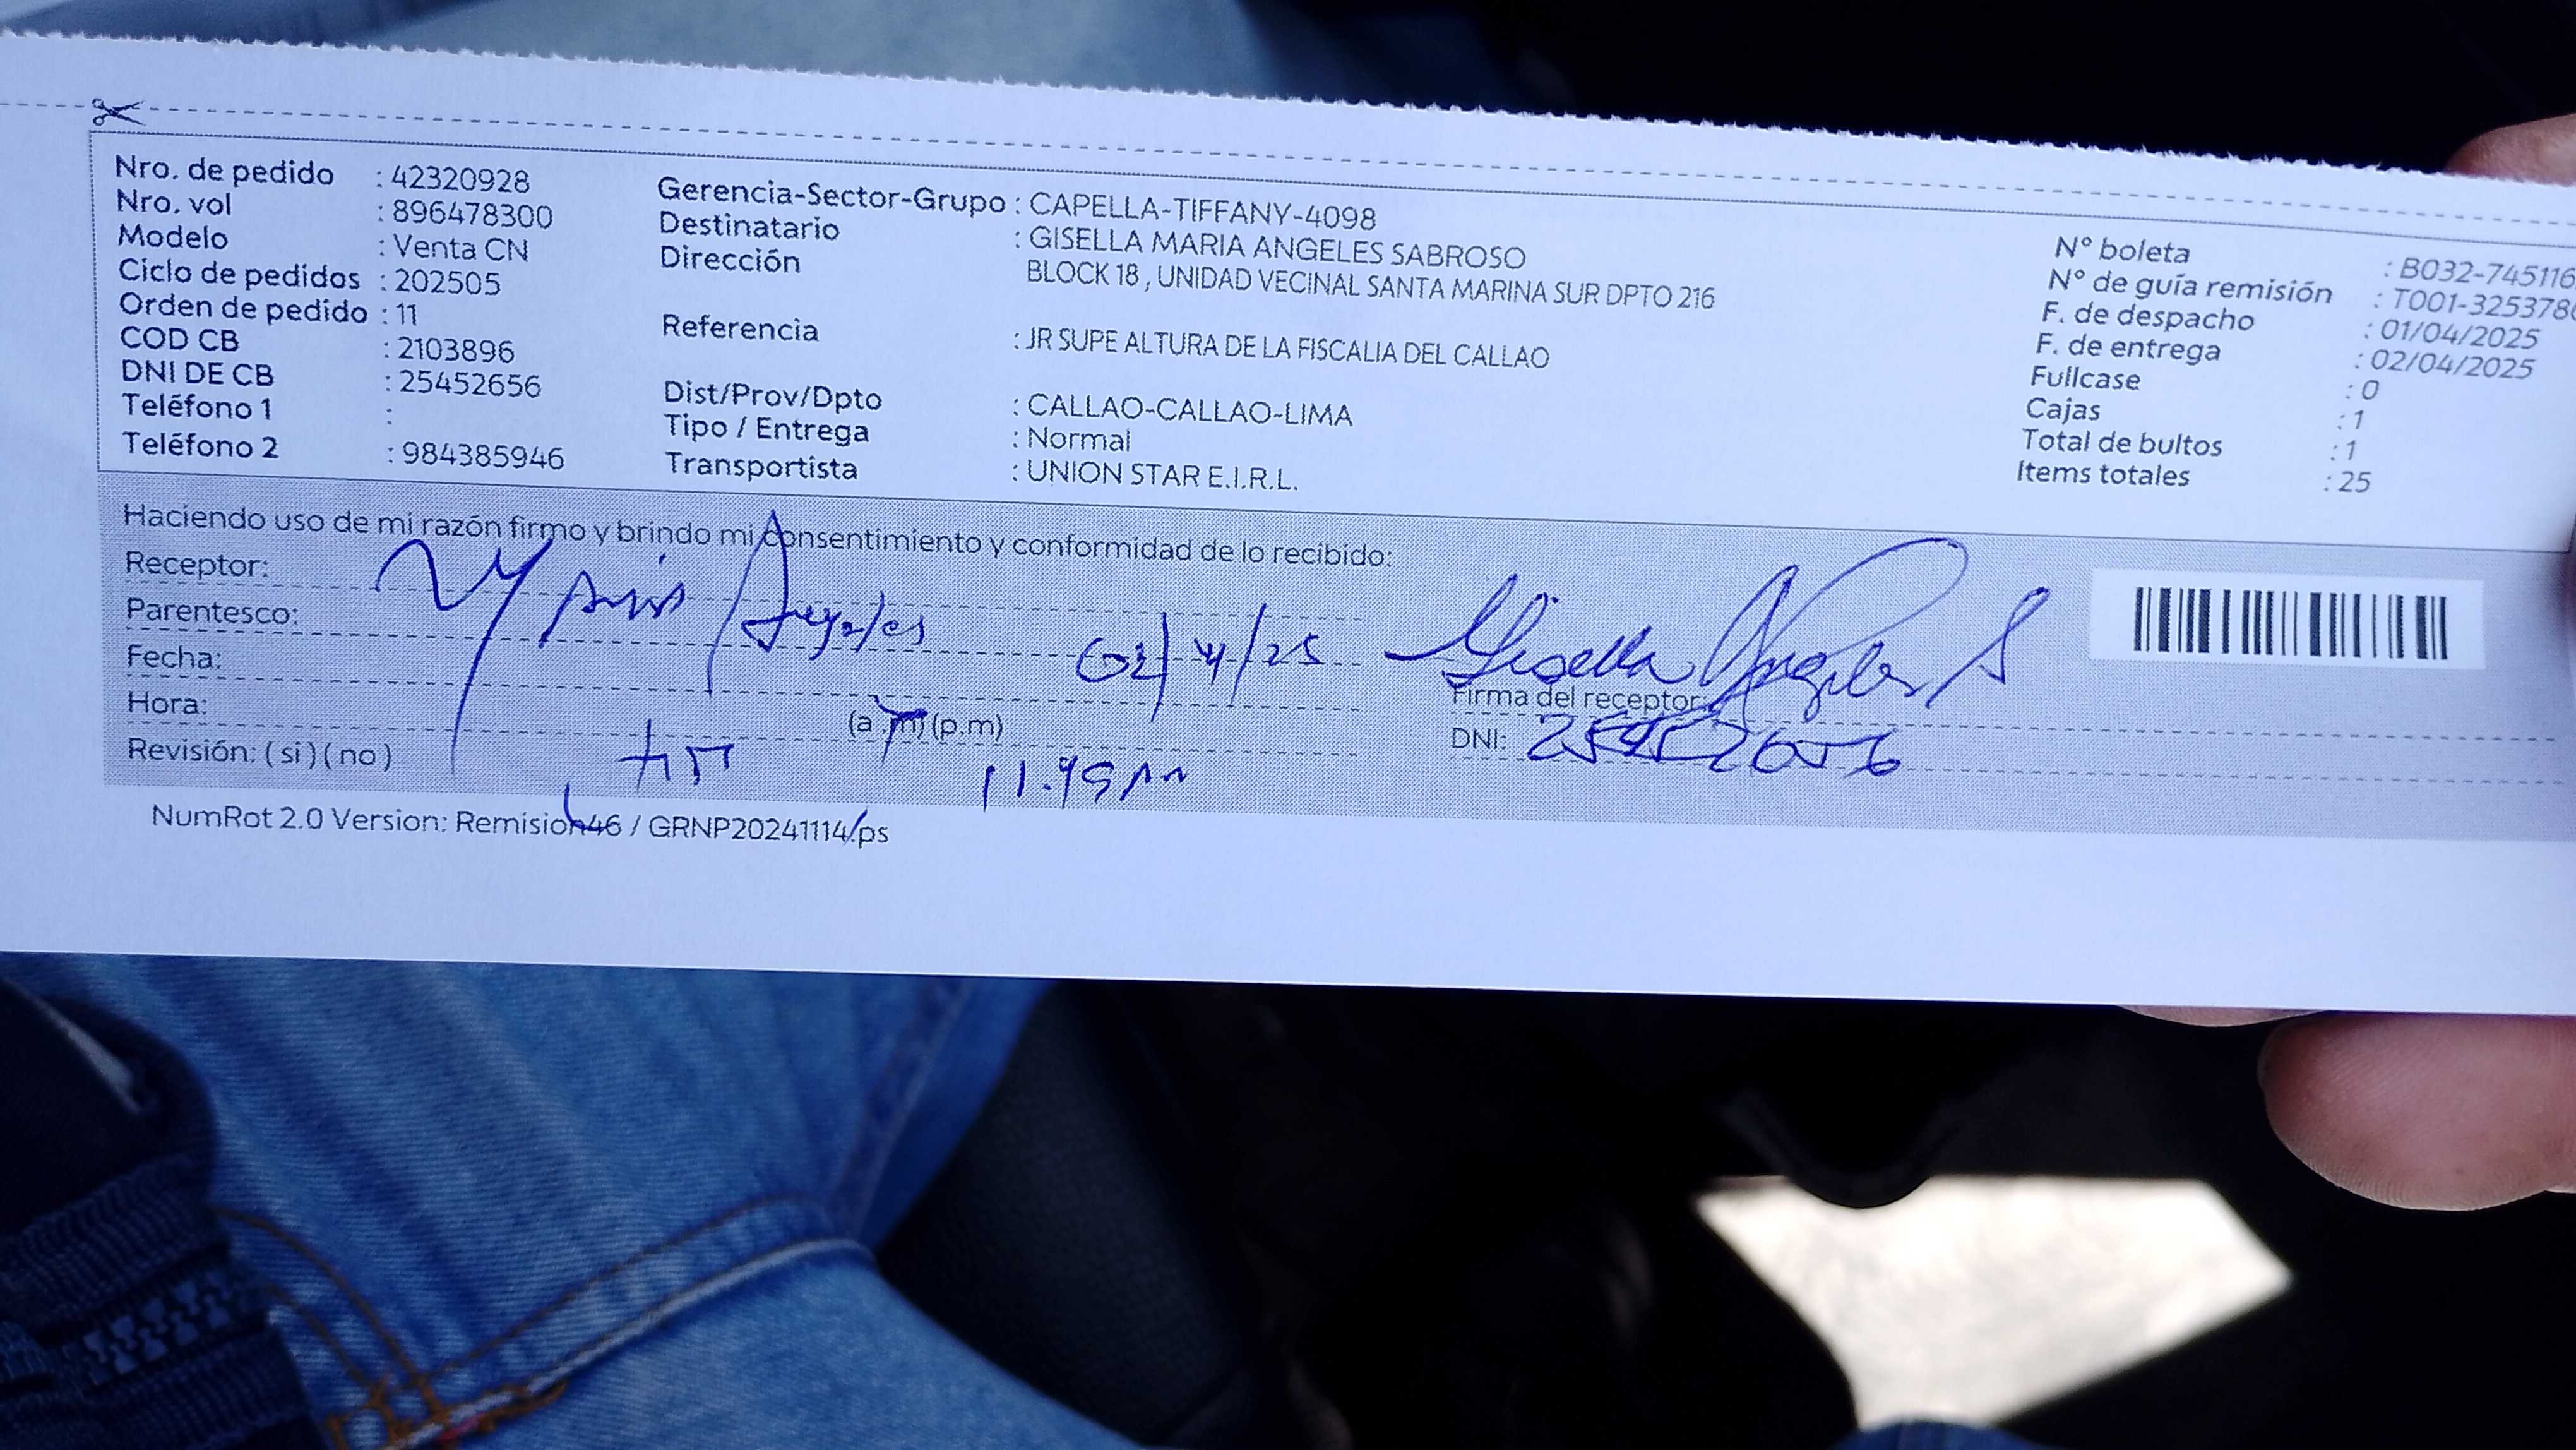 Nro. de pedido : 42320928
Nro. vol : 896478300
Modelo : Venta CN
Ciclo de pedidos : 202505
Orden de pedido : 11
COD CB : 2103896
DNI DE CB : 25452656
Teléfono 1 :
Teléfono 2 : 984385946
Gerencia-Sector-Grupo : CAPELLA-TIFFANY-4098
Destinatario : GISELLA MARIA ANGELES SABROSO
Dirección BLOCK 18 , UNIDAD VECINAL SANTA MARINA SUR DPTO 216
Referencia : JR SUPE ALTURA DE LA FISCALIA DEL CALLAO
Dist/Prov/Dpto : CALLAO-CALLAO-LIMA
Tipo / Entrega : Normal
Transportista : UNION STAR E.I.R.L.
N° boleta : B032-745116
N° de guía remisión : T001-325378
F. de despacho : 01/04/2025
F. de entrega : 02/04/2025
Fullcase : 0
Cajas : 1
Total de bultos : 1
Items totales : 25
Haciendo uso de mi razón firmo y brindo mi consentimiento y conformidad de lo recibido:
Receptor:
Parentesco:
Angeles
Fecha:
02/4/25
Hora:
(a.m) (p.m)
Revisión: ( si ) ( no )
Gisella Angeles S
Firma del receptor:
DNI: 25452656
NumRot 2.0 Version: Remision46 / GRNP20241114/ps